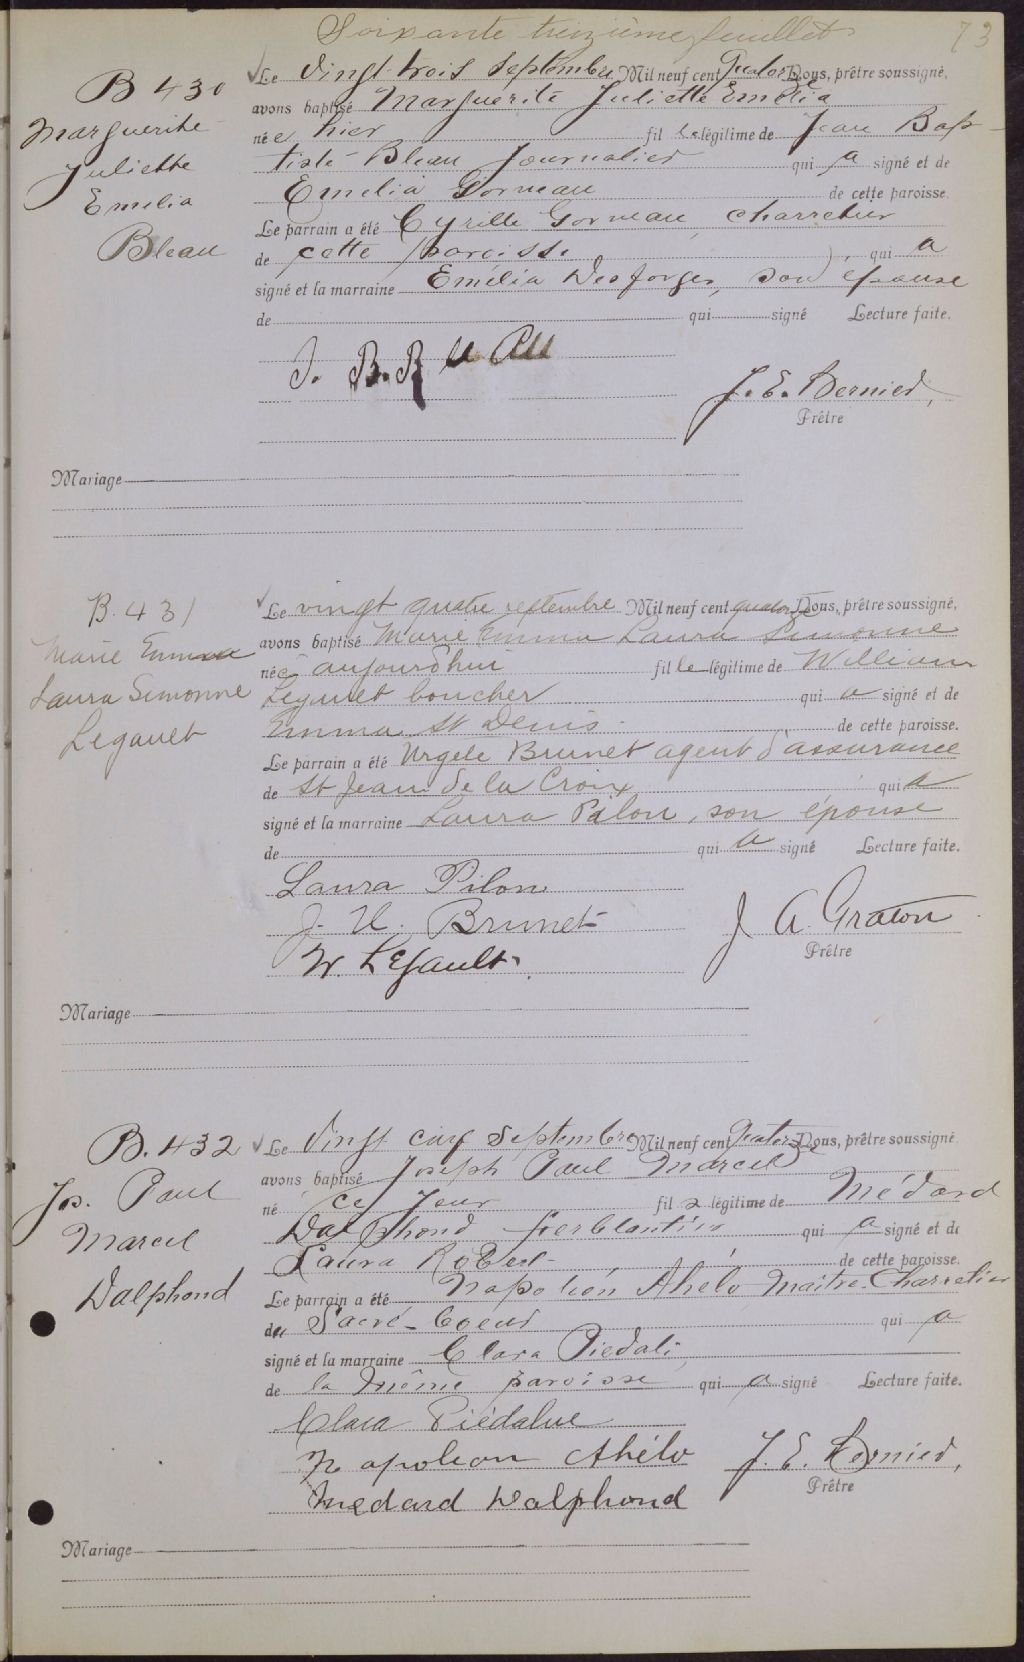 Soixante treizième feuillet 73
B 430
Marguerite
Juliette
Emilia
Bleau
Le vingt trois Septembre Mil neuf cent Quatorze Nous, prêtre soussigné,
avons baptisé Marguerite Juliette Emélia
née hier fille légitime de Jean Bap-
tiste Bleau Journalier qui a signé et de
Emelia Gorneau de cette paroisse.
Le parrain a été Cyrille Gorneau, charretier
de cette paroisse qui a
signé et la marraine Emélia Desforges, son épouse
de qui signé Lecture faite.
J. B.
J. E. Bernier,
Prêtre
Mariage
B. 431
Marie Emma
Laura Simonne
Legault
Le vingt quatre septembre Mil neuf cent quatorze Nous, prêtre soussigné,
avons baptisé Marie Emma Laura Simonne
née aujourdhui fille légitime de William
Legault boucher qui a signé et de
Emma St Denis de cette paroisse.
Le parrain a été Urgele Brunet agent d'assurance
de St Jean de la Croix qui a
signé et la marraine Laura Pilon, son épouse
de qui a signé Lecture faite.
Laura Pilon
J. U. Brunet
W. Legault
J A. Graton
Prêtre
Mariage
B. 432
Jos. Paul
Marcel
Dalphond
Le Vingt cinq Septembre Mil neuf cent Quatorze Nous, prêtre soussigné
avons baptisé Joseph Paul Marcel
né ce jour fils légitime de Médard
Dalphond ferblantier qui a signé et de
Laura Robert de cette paroisse.
Le parrain a été Napoléon Ahélo Maître-Charretier
du Sacré-Coeur qui a
signé et la marraine Clara Piedalu
de la même paroisse qui a signé Lecture faite.
Clara Piédalue
Napoleon Ahélo
Medard Dalphond
J. E. Bernier,
Prêtre
Mariage